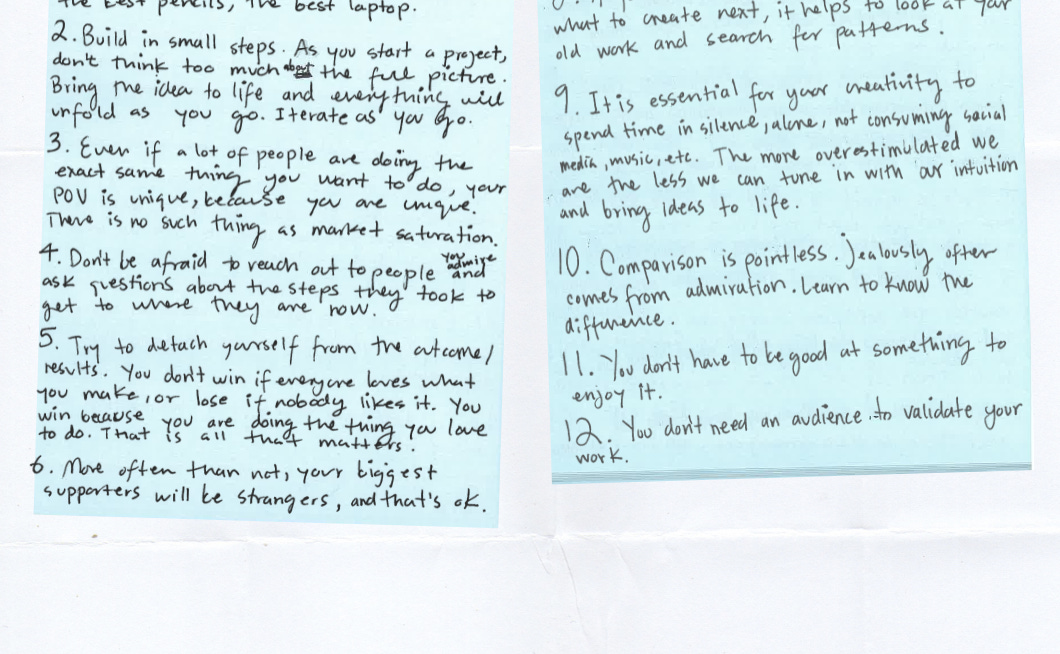 the best pencils, the best laptop.
2. Build in small steps. As you start a project,
don't think too much about the full picture.
Bring the idea to life and everything will
unfold as you go. Iterate as you go.
3. Even if a lot of people are doing the
exact same thing you want to do, your
POV is unique, because you are unique.
There is no such thing as market saturation.
4. Don't be afraid to reach out to people you admire and
ask questions about the steps they took to
get to where they are now.
5. Try to detach yourself from the outcome/
results. You don't win if everyone loves what
you make, or lose if nobody likes it. You
win because you are doing the thing you love
to do. That is all that matters.
6. More often than not, your biggest
supporters will be strangers, and that's ok.
what to create next, it helps to look at your
old work and search for patterns.
9. It is essential for your creativity to
spend time in silence, alone, not consuming social
media, music, etc. The more overestimulated we
are the less we can tune in with our intuition
and bring ideas to life.
10. Comparison is pointless. Jealously often
comes from admiration. Learn to know the
difference.
11. You don't have to be good at something to
enjoy it.
12. You don't need an audience to validate your
work.